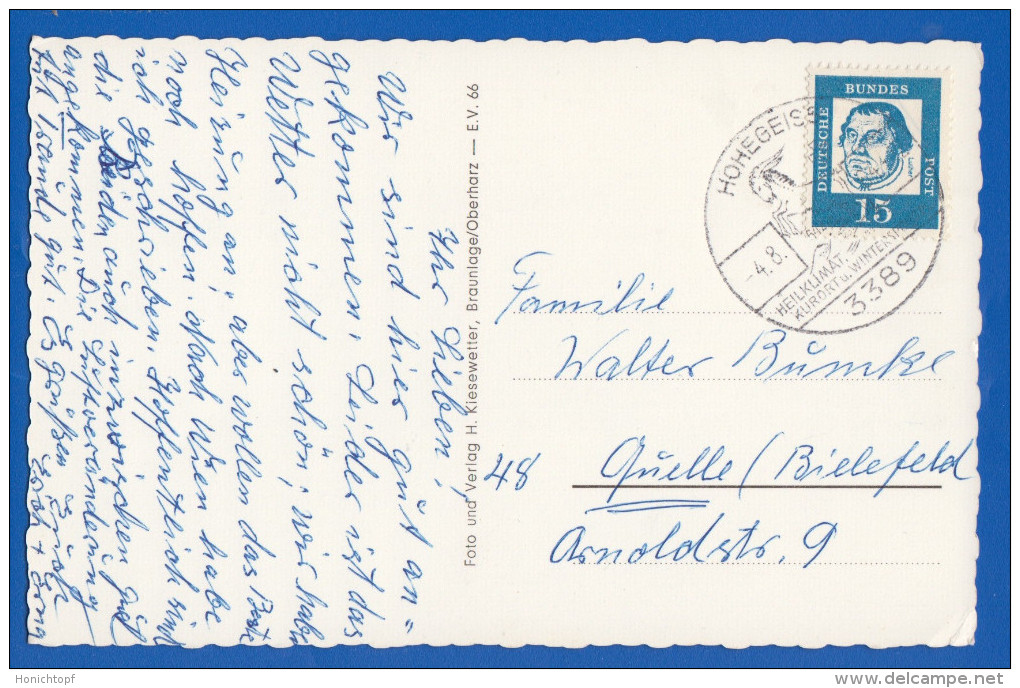 Ihr Lieben,
Wir sind hier gut an=
gekommen. Leider ist das
Wetter nicht schön, wir haben
Heizung an, aber wollen das Beste
noch hoffen. Nach Wien habe
ich geschrieben. Hoffentlich sind
die Beiden auch inzwischen gut
angekommen. Die Luftveränderung
tut beide gut. Es grüßen Euch
Foto und Verlag H. Kiesewetter, Braunlage/Oberharz — E.V. 66
HOHEGEISS
-4.8.
HEILKLIMAT.
KURORT u. WINTERS
3389
DEUTSCHE
BUNDES
POST
15
Familie
Walter Bumke
48 Quelle / Bielefeld
Arnoldstr. 9
Honichtopf
delcampe.net